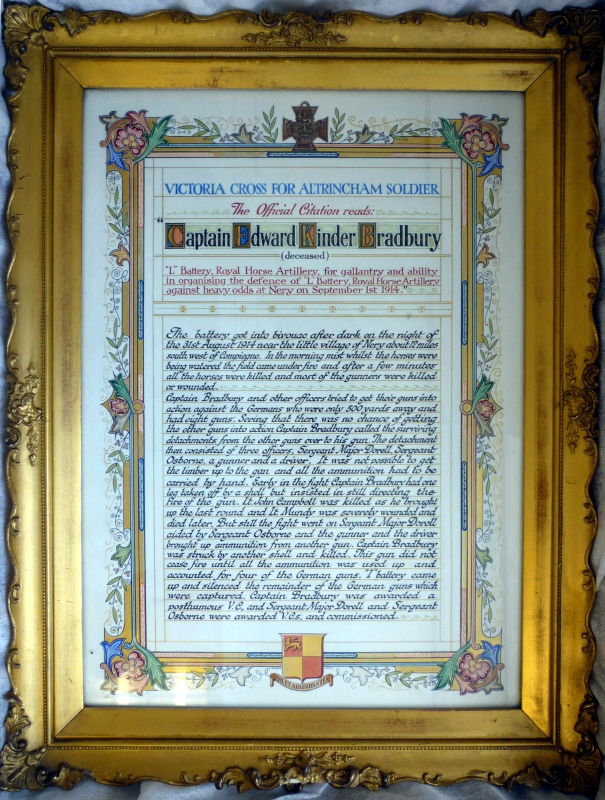 VICTORIA CROSS FOR ALTRINCHAM SOLDIER
The Official Citation reads:
"Captain Edward Kinder Bradbury
(deceased)
"L" Battery, Royal Horse Artillery, for gallantry and ability
in organising the defence of "L" Battery, Royal Horse Artillery
against heavy odds at Nery on September 1st 1914."
The battery got into bivouac after dark on the night of
the 31st August 1914 near the little village of Nery about 12 miles
south west of Compiegne. In the morning mist whilst the horses were
being watered the field came under fire and after a few minutes
all the horses were killed and most of the gunners were killed
or wounded.
Captain Bradbury and other officers tried to get their guns into
action against the Germans who were only 500 yards away and
had eight guns. Seeing that there was no chance of getting
the other guns into action Captain Bradbury called the surviving
detachments from the other guns over to his gun. The detachment
then consisted of three officers, Sergeant Major Dorell, Sergeant
Osborne, a gunner and a driver. It was not possible to get
the limber up to the gun and all the ammunition had to be
carried by hand. Early in the fight Captain Bradbury had one
leg taken off by a shell but insisted in still directing the
fire of the gun. Lt. John Campbell was killed as he brought
up the last round and Lt Mundy was severely wounded and
died later. But still the fight went on Sergeant Major Dorell
aided by Sergeant Osborne and the gunner and the driver
brought up ammunition from another gun. Captain Bradbury
was struck by another shell and killed. This gun did not
cease fire until all the ammunition was used up and
accounted for four of the German guns. "I" battery came
up and silenced the remainder of the German guns which
were captured. Captain Bradbury was awarded a
posthumous V.C. and Sergeant Major Dorell and Sergeant
Osborne were awarded V.C.s. and commissioned.